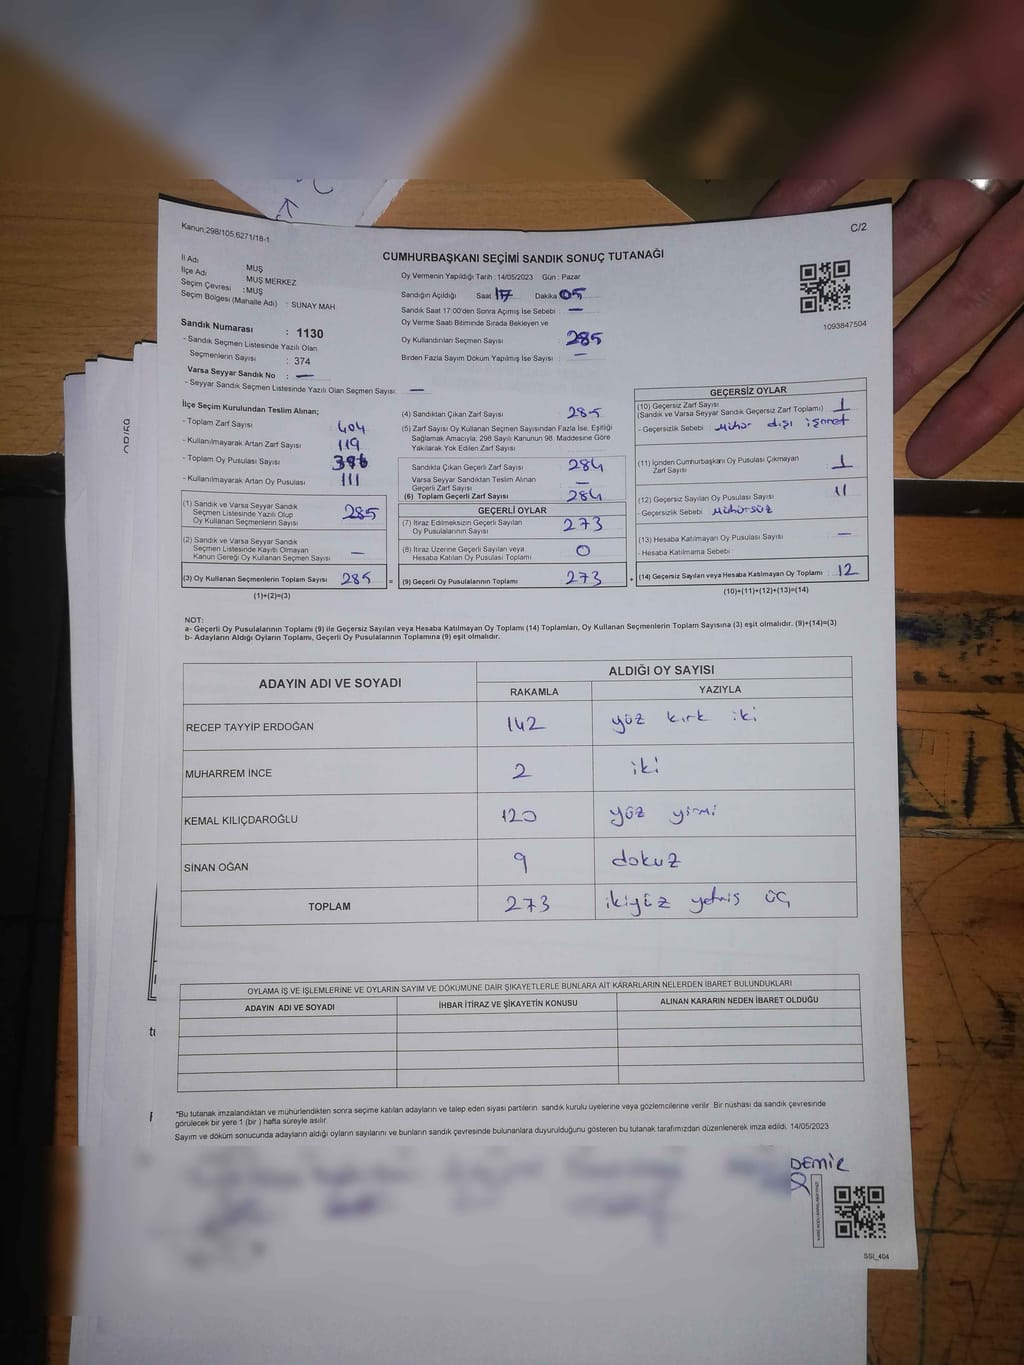 Kanun;298/105,6271/18-1
C/2
CUMHURBAŞKANI SEÇİMİ SANDIK SONUÇ TUTANAĞI
İl Adı MUŞ
İlçe Adı MUŞ MERKEZ
Seçim Çevresi : MUŞ
Seçim Bölgesi (Mahalle Adı) : SUNAY MAH
Sandık Numarası : 1130
- Sandık Seçmen Listesinde Yazılı Olan
Seçmenlerin Sayısı : 374
Varsa Seyyar Sandık No : —
- Seyyar Sandık Seçmen Listesinde Yazılı Olan Seçmen Sayısı: —
Oy Vermenin Yapıldığı Tarih : 14/05/2023 Gün : Pazar
Sandığın Açıldığı Saat 17 Dakika 05
Sandık Saat 17.00'den Sonra Açımış İse Sebebi : —
Oy Verme Saati Bitiminde Sırada Bekleyen ve
Oy Kullandırılan Seçmen Sayısı : 285
Birden Fazla Sayım Döküm Yapılmış İse Sayısı : —
1093847504
İlçe Seçim Kurulundan Teslim Alınan;
- Toplam Zarf Sayısı 404
- Kullanılmayarak Artan Zarf Sayısı 119
- Toplam Oy Pusulası Sayısı
- Kullanılmayarak Artan Oy Pusulası 111
(1) Sandık ve Varsa Seyyar Sandık
Seçmen Listesinde Yazılı Olup
Oy Kullanan Seçmenlerin Sayısı 285
(2) Sandık ve Varsa Seyyar Sandık
Seçmen Listesinde Kayıtlı Olmayan
Kanun Gereği Oy Kullanan Seçmen Sayısı —
(3) Oy Kullanan Seçmenlerin Toplam Sayısı 285 =
(1)+(2)=(3)
(4) Sandıktan Çıkan Zarf Sayısı 285
(5) Zarf Sayısı Oy Kullanan Seçmen Sayısından Fazla İse, Eşitliği
Sağlamak Amacıyla; 298 Sayılı Kanunun 98. Maddesine Göre
Yakılarak Yok Edilen Zarf Sayısı
Sandıkta Çıkan Geçerli Zarf Sayısı 284
Varsa Seyyar Sandıktan Teslim Alınan
Geçerli Zarf Sayısı —
(6) Toplam Geçerli Zarf Sayısı 284
GEÇERLİ OYLAR
(7) İtiraz Edilmeksizin Geçerli Sayılan
Oy Pusulalarının Sayısı 273
(8) İtiraz Üzerine Geçerli Sayılan veya
Hesaba Katılan Oy Pusulası Toplamı 0
(9) Geçerli Oy Pusulalarının Toplamı 273 +
GEÇERSİZ OYLAR
(10) Geçersiz Zarf Sayısı
(Sandık ve Varsa Seyyar Sandık Geçersiz Zarf Toplamı) 1
- Geçersizlik Sebebi : mühür dışı işaret
(11) İçinden Cumhurbaşkanı Oy Pusulası Çıkmayan
Zarf Sayısı 1
(12) Geçersiz Sayılan Oy Pusulası Sayısı 11
- Geçersizlik Sebebi mühürsüz
(13) Hesaba Katılmayan Oy Pusulası Sayısı —
- Hesaba Katılmama Sebebi :
(14) Geçersiz Sayılan veya Hesaba Katılmayan Oy Toplamı : 12
(10)+(11)+(12)+(13)=(14)
NOT:
a- Geçerli Oy Pusulalarının Toplamı (9) ile Geçersiz Sayılan veya Hesaba Katılmayan Oy Toplamı (14) Toplamları, Oy Kullanan Seçmenlerin Toplam Sayısına (3) eşit olmalıdır. (9)+(14)=(3)
b- Adayların Aldığı Oyların Toplamı, Geçerli Oy Pusulalarının Toplamına (9) eşit olmalıdır.
ADAYIN ADI VE SOYADI
ALDIĞI OY SAYISI
RAKAMLA YAZIYLA
RECEP TAYYİP ERDOĞAN 142 yüz kırk iki
MUHARREM İNCE 2 iki
KEMAL KILIÇDAROĞLU 120 yüz yirmi
SİNAN OĞAN 9 dokuz
TOPLAM 273 ikiyüz yetmiş üç
OYLAMA İŞ VE İŞLEMLERİNE VE OYLARIN SAYIM VE DÖKÜMÜNE DAİR ŞİKAYETLERLE BUNLARA AİT KARARLARIN NELERDEN İBARET BULUNDUKLARI
ADAYIN ADI VE SOYADI İHBAR İTİRAZ VE ŞİKAYETİN KONUSU ALINAN KARARIN NEDEN İBARET OLDUĞU
*Bu tutanak imzalandıktan ve mühürlendikten sonra seçime katılan adayların ve talep eden siyasi partilerin sandık kurulu üyelerine veya gözlemcilerine verilir. Bir nüshası da sandık çevresinde
görülecek bir yere 1 (bir ) hafta süreyle asılır.
Sayım ve döküm sonucunda adayların aldığı oyların sayılarını ve bunların sandık çevresinde bulunanlara duyurulduğunu gösteren bu tutanak tarafımızdan düzenlenerek imza edildi. 14/05/2023
DEMİR
SSI_404